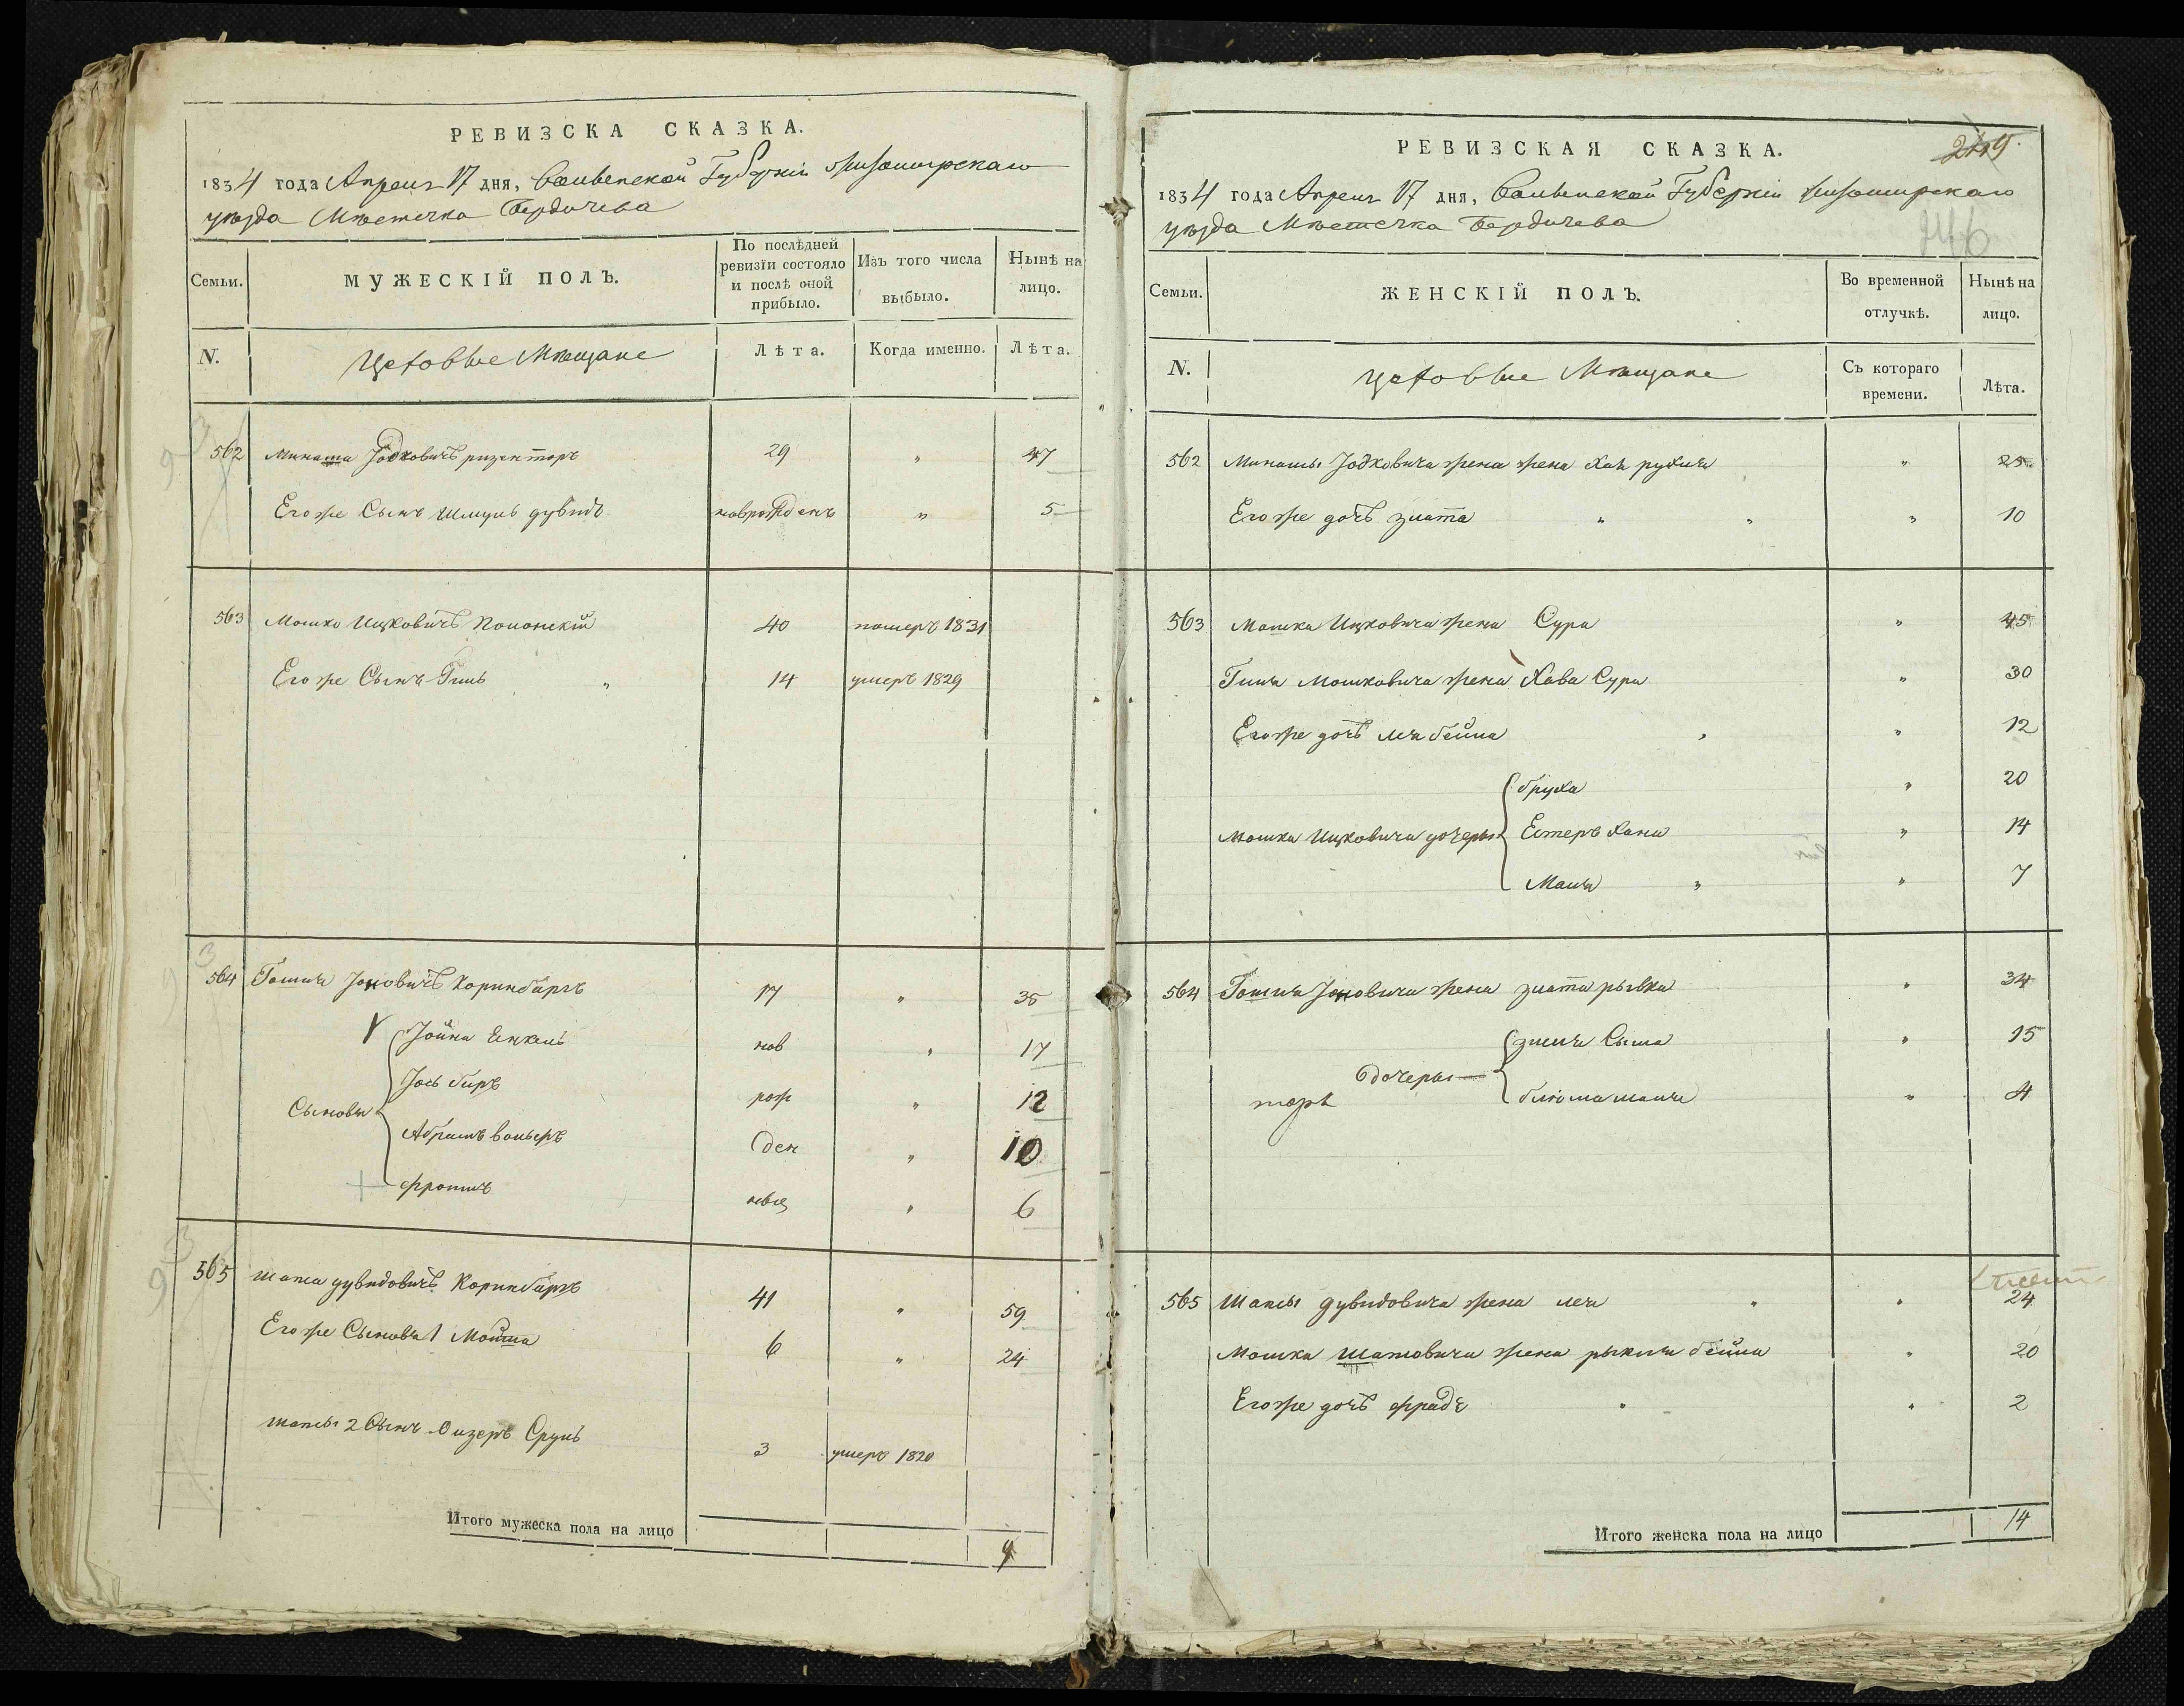 РЕВИЗСКА СКАЗКА.
1834 года Апреля 17 дня, Волынской Губернiи Житомирскаго
уѣзда Мѣстечка Бердичева
Семьи.
МУЖЕСКІЙ ПОЛЪ.
По послѣдней ревизїи состояло и послѣ оной прибыло.
Изъ того числа выбыло.
Нынѣ на лицо.
N.
Цеховые Мѣщане
Лѣта.
Когда именно.
Лѣта.
562 Минаша Іодковичъ 29 " 47
Егоже Сынъ Шмуль дувидъ новорожденъ " 5
563 Мошко Ицковичъ Полонскій 40 померъ 1831
Егоже Сынъ Гиль " 14 умеръ 1829
564 Іоновичъ Коринбаргъ 17 " 35
Іойна Енкель нов " 17
Іось беръ рож " 12
Сыновья
Абрамъ вольфъ ден " 10
фроимъ " 6
565 Шапса дувидовичъ Коринбаргъ 41 " 59
Егоже Сыновья 1 Мойша 6 " 24
Шапсы 2 Сынъ Лизеръ Сруль 3 умеръ 1820
Итого мужеска пола на лицо 9
РЕВИЗСКАЯ СКАЗКА.
1834 года Апреля 17 дня, Волынской Губернiи Житомирскаго
уѣзда Мѣстечка Бердичева
246
Семьи.
ЖЕНСКІЙ ПОЛЪ.
Во временной отлучкѣ.
Нынѣ на лицо.
N.
Цеховые Мѣщане
Съ котораго времени.
Лѣта.
562 Минашы Іодковича жена жена Хая рухля " 25
Егоже дочь злата " " " 10
563 Мошка Ицковича жена Сура " 45
Гиля Мошковича жена Хава Сура " 30
Егоже дочь лея бейла " " 12
бруха " 20
Мошка Ицковича дочеры Естеръ Хана " 14
Маля " " 7
564 Іоновича жена злата рывка " 34
Сыма " 15
дочеры
" 4
565 Шапсы дувидовича жена леа " " 24
Мошка Шапсовича жена бейла " 20
Егоже дочь фрадѣ " " 2
Итого женска пола на лицо 14